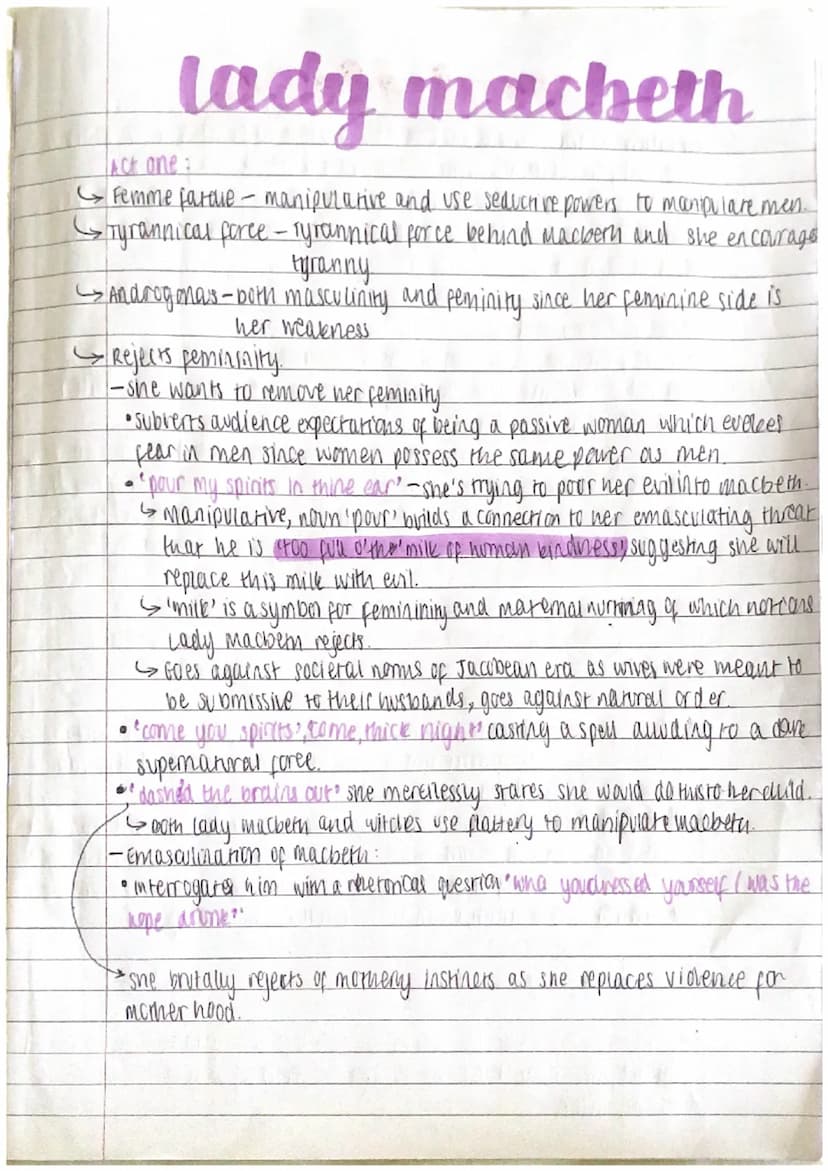 lady macbeth
Act one:
↳ Femme fatale – manipulative and use seductive powers to manipulate men.
↳ Tyrannical force – Tyrannical force behind Macbeth and she encourage
tyranny
↳ Androgonas – both masculinity and feminity since her feminine side is
her weakness
↳ Rejects femininity.
– she wants to remove her feminity
• subverts audience expectations of being a passive woman which evokes
fear in men since women possess the same power as men.
• 'pour my spirits in thine ear' – she's trying to poor her evil into macbeth.
↳ Manipulative, noun 'pour' builds a connection to her emasculating threat
that he is 'too full o'the' milk of human kindness' suggesting she will
replace this milk with evil.
↳ 'milk' is a symbol for feminining and maternal nurturing of which notions
Lady Macbeth rejects.
↳ Goes against societal norms of Jacobean era as wives were meant to
be submissive to their husbands, goes against natural order.
• 'come you spirits', 'come, thick night' casting a spell alluding to a dark
supernatural force.
• 'dashed the brains out' she mercilessly states she would do this to her child.
↳ both lady macbeth and witches use flattery to manipulate macbeth.
– Emasculization of macbeth:
• interrogates him with a rhetorical question 'who you dressed yourself / was the
hope drunk'
• she brutally rejects of motherly instincts as she replaces violence for
motherhood.